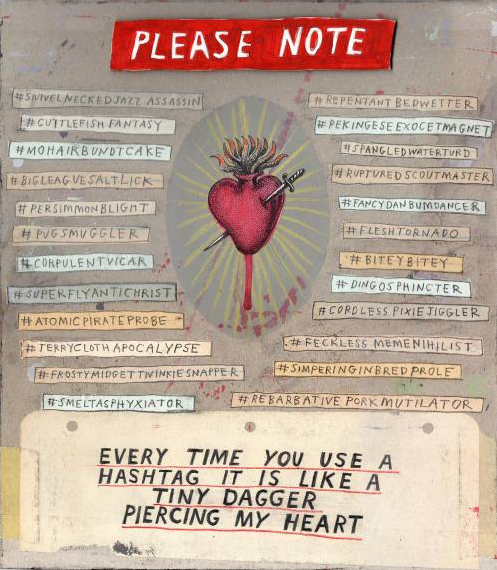 PLEASE NOTE
#SWIVELNECKEDJAZZ ASSASSIN
#CUTTLEFISH FANTASY
#MOHAIRBUNDTCAKE
#BIGLEAGUESALTLICK
#PERSIMMONBLIGHT
#PUGSMUGGLER
#CORPULENTVICAR
#SUPERFLYANTICHRIST
#ATOMICPIRATEPROBE
#TERRYCLOTHAPOCALYPSE
#FROSTYMIDGETTWINKIESNAPPER
#SMELTASPHYXIATOR
#REPENTANTBEDWETTER
#PEKINGESEEXOCETMAGNET
#SPANGLEDWATERTURD
#RUPTUREDSCOUTMASTER
#FANCYDANBUMDANCER
#FLESHTORNADO
#BITEYBITEY
#DINGOSPHINCTER
#CORDLESS PIXIEJIGGLER
#FECKLESS MEMENIHILIST
#SIMPERINGINBREDPROLE
#REBARBATIVE PORKMUTILATOR
EVERY TIME YOU USE A
HASHTAG IT IS LIKE A
TINY DAGGER
PIERCING MY HEART